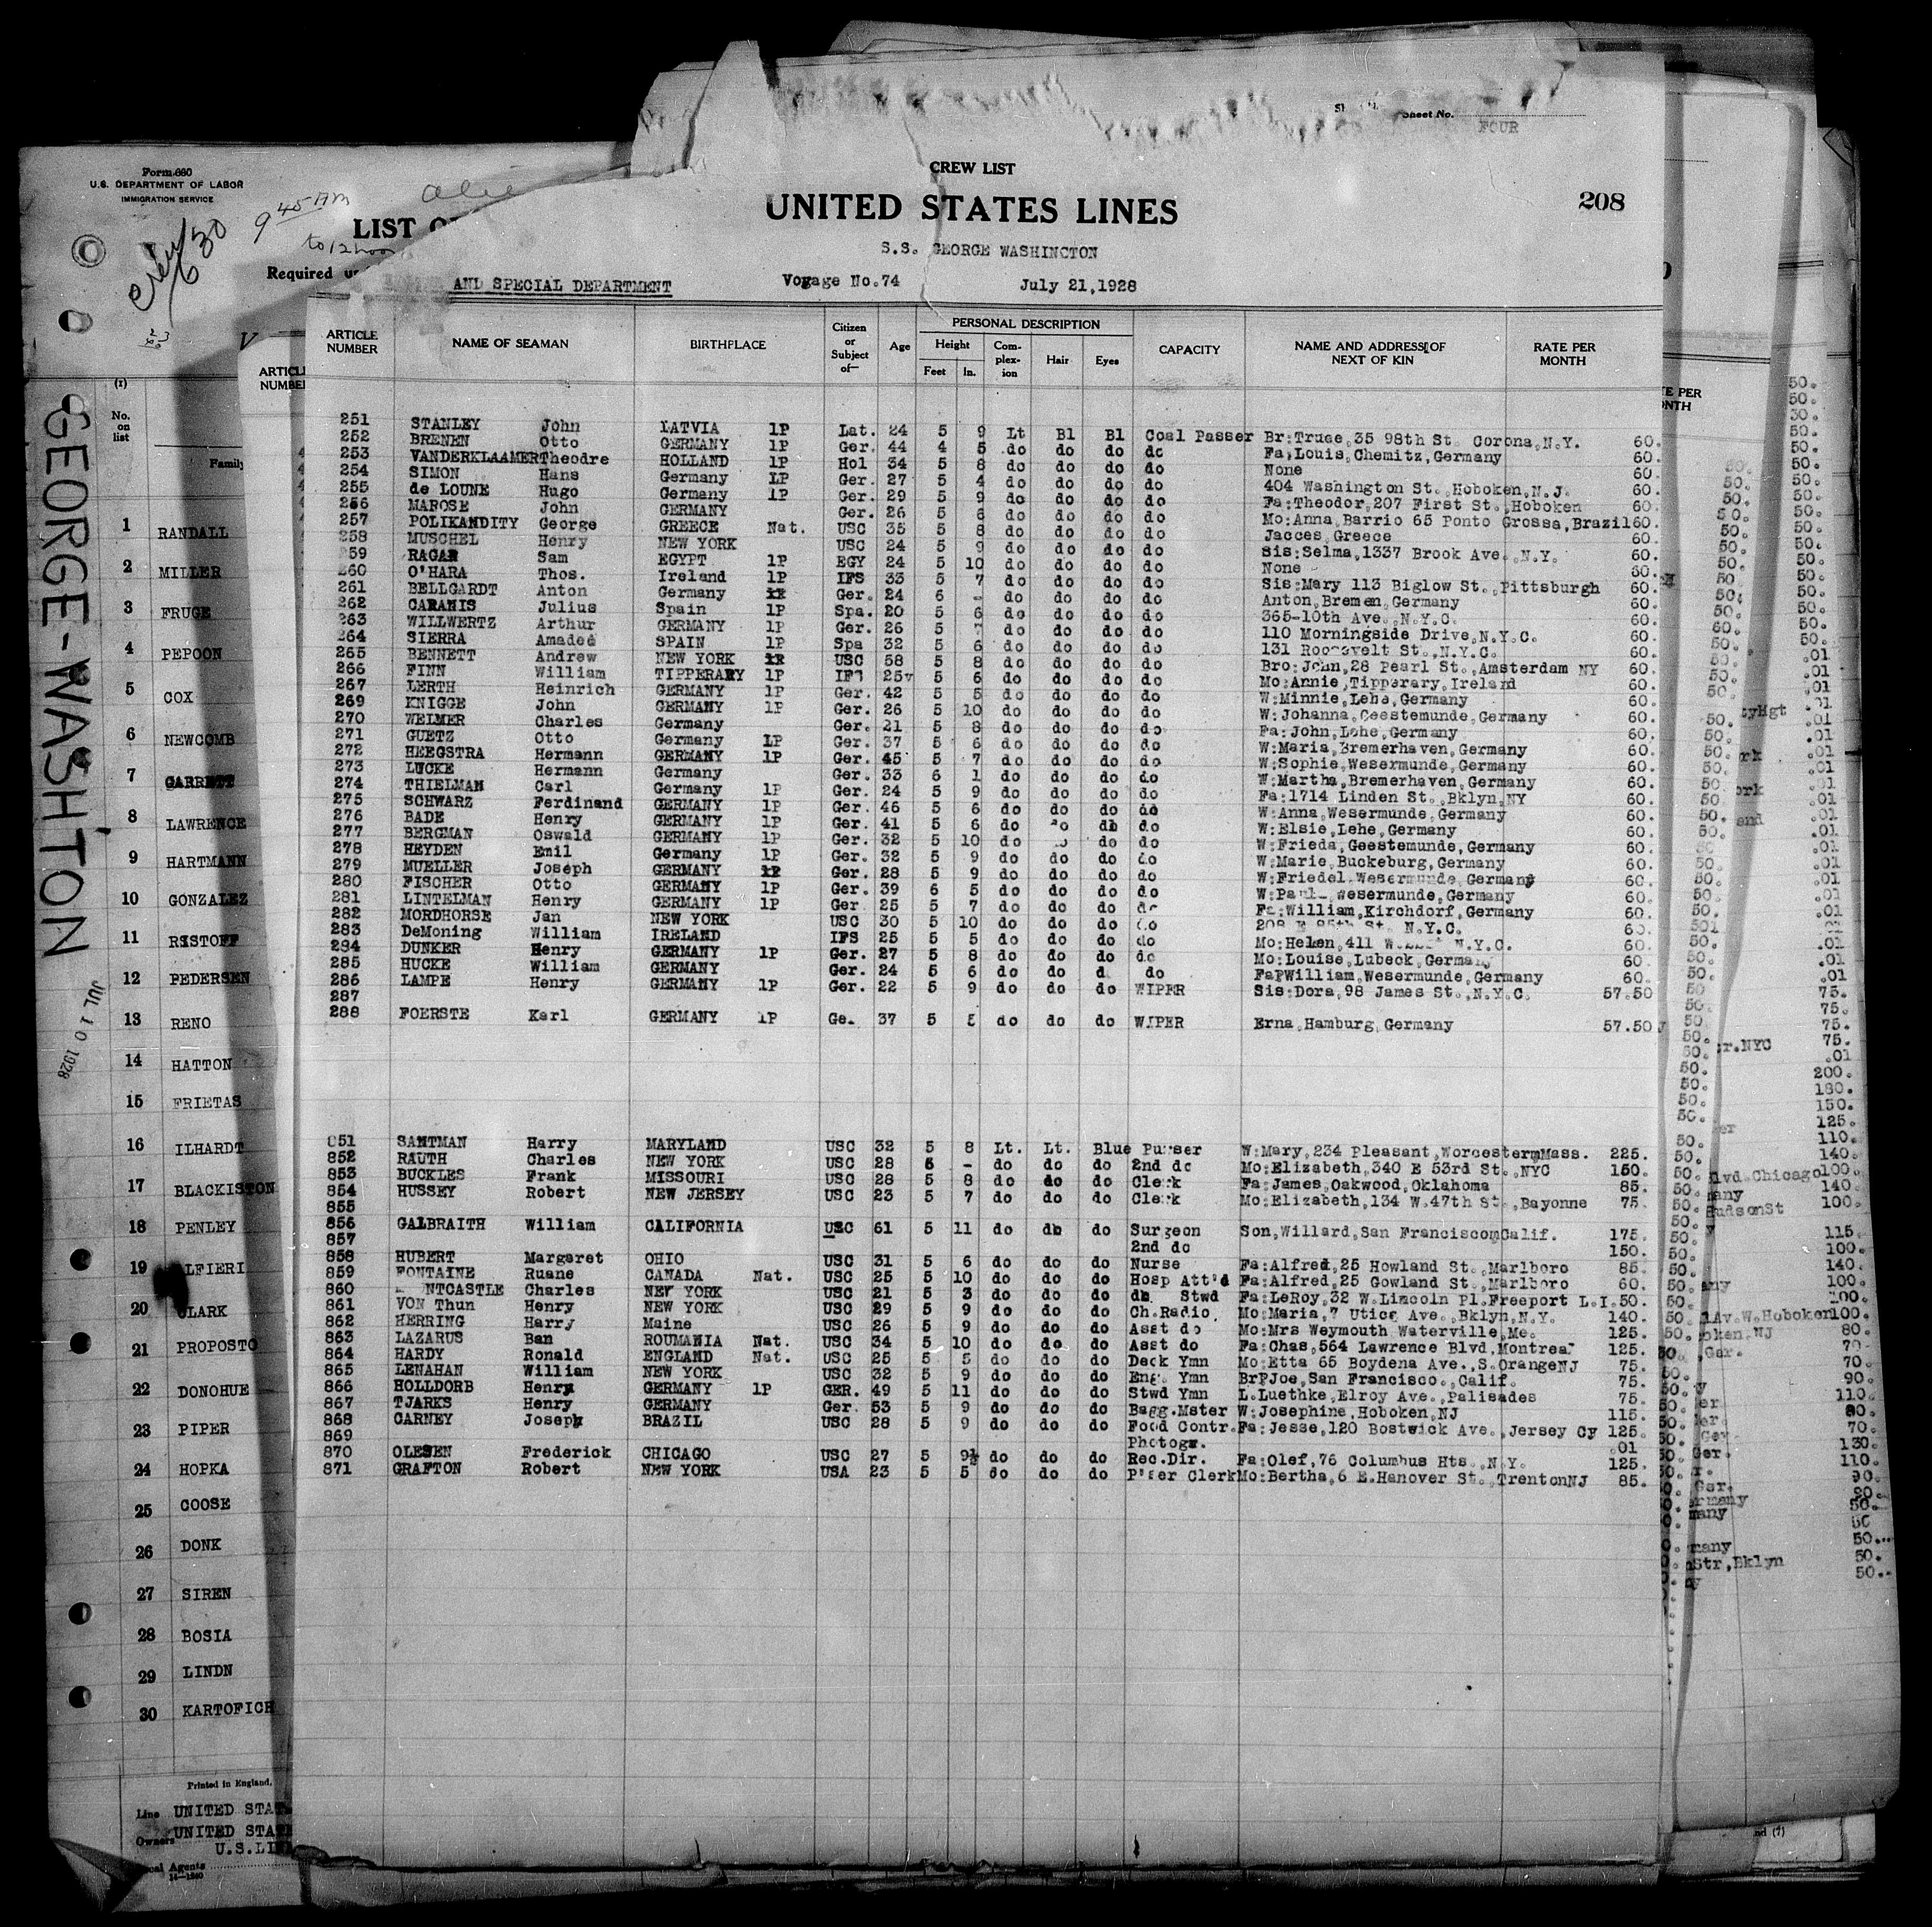 Sheet No.
FOUR
CREW LIST
UNITED STATES LINES
208
S.S. GEORGE WASHINGTON
AND SPECIAL DEPARTMENT Voyage No.74 July 21,1928
ARTICLE NUMBER NAME OF SEAMAN BIRTHPLACE Citizen or Subject of— Age PERSONAL DESCRIPTION Height Feet In. Complexion Hair Eyes CAPACITY NAME AND ADDRESS OF NEXT OF KIN RATE PER MONTH
251 STANLEY John LATVIA 1P Lat. 24 5 9 Lt Bl Bl Coal Passer Br:Truse,35 98th St. Corona,N.Y. 60.
252 BRENEN Otto GERMANY 1P Ger. 44 4 5 do do do do Fa,Louis,Chemitz,Germany 60.
253 VANDERKLAAMER Theodre HOLLAND 1P Hol 34 5 8 do do do do None 60.
254 SIMON Hans Germany 1P Ger. 27 5 4 do do do do 404 Washington St.,Hoboken,N.J. 60.
255 de LOUNE Hugo Germany 1P Ger. 29 5 9 do do do do Fa:Theodor,207 First St.,Hoboken 60.
256 MAROSE John GERMANY Ger. 26 5 6 do do do do Mo:Anna,Barrio 65 Ponto Grossa,Brazil 60.
257 POLIKANDITY George GREECE Nat. USC 35 5 8 do do do do Jacces,Greece 60.
258 MUSCHEL Henry NEW YORK USC 24 5 9 do do do do Sis:Selma,1337 Brook Ave.,N.Y. 60.
259 RAGAR Sam EGYPT 1P EGY 24 5 10 do do do do None 60.
260 O'HARA Thos. Ireland 1P IFS 33 5 7 do do do do Sis:Mary 113 Biglow St.,Pittsburgh 60.
261 BELLGARDT Anton Germany Ger. 24 6 - do do do do Anton,Bremen,Germany 60.
262 CARANIS Julius Spain 1P Spa. 20 5 6 do do do do 365-10th Ave.,N.Y.C. 60.
263 WILLWERTZ Arthur GERMANY 1P Ger. 26 5 7 do do do do 110 Morningside Drive,N.Y.C. 60.
264 SIERRA Amadeo SPAIN 1P Spa 32 5 6 do do do do 131 Roosevelt St.,N.Y.C. 60.
265 BENNETT Andrew NEW YORK USC 58 5 8 do do do do Bro:John,28 Pearl St.,Amsterdam NY 60.
266 FINN William TIPPERARY 1P IFS 25 5 6 do do do do Mo:Annie,Tipperary,Ireland 60.
267 LERTH Heinrich GERMANY 1P Ger. 42 5 5 do do do do W:Minnie,Lehe,Germany 60.
269 KNIGGE John GERMANY 1P Ger. 26 5 10 do do do do W:Johanna,Geestemunde,Germany 60.
270 WEIMER Charles Germany Ger. 21 5 8 do do do do Fa:John,Lohe,Germany 60.
271 GUETZ Otto Germany 1P Ger. 37 5 6 do do do do W:Maria,Bremerhaven,Germany 60.
272 HEEGSTRA Hermann GERMANY 1P Ger. 45 5 7 do do do do W:Sophie,Wesermunde,Germany 60.
273 LUCKE Hermann Germany Ger. 33 6 1 do do do do W:Martha,Bremerhaven,Germany 60.
274 THIELMAN Carl Germany 1P Ger. 24 5 9 do do do do Fa:1714 Linden St.,Bklyn,NY 60.
275 SCHWARZ Ferdinand GERMANY 1P Ger. 46 5 6 do do do do W:Anna,Wesermunde,Germany 60.
276 BADE Henry GERMANY 1P Ger. 41 5 6 do do do do W:Elsie,Lehe,Germany 60.
277 BERGMAN Oswald GERMANY 1P Ger. 32 5 10 do do do W:Frieda,Geestemunde,Germany 60.
278 HEYDEN Emil Germany 1P Ger. 32 5 9 do do do do W:Marie,Buckeburg,Germany 60.
279 MUELLER Joseph GERMANY Ger. 28 5 9 do do do do W:Friedel Wesermunde,Germany 60.
280 FISCHER Otto GERMANY 1P Ger. 39 6 5 do do do do W:Paul Wesermunde,Germany 60.
281 LINTELMAN Henry GERMANY 1P Ger. 25 5 7 do do do do Fa:William,Kirchdorf,Germany 60.
282 MORDHORSE Jan NEW YORK USC 30 5 10 do do do do 208 E 85th St. N.Y.C. 60.
283 DeMoning William IRELAND IFS 25 5 5 do do do do Mo:Helen,411 N.Y.C. 60.
284 DUNKER Henry GERMANY 1P Ger. 27 5 8 do do do do Mo:Louise,Lubeck,Germany 60.
285 HUCKE William GERMANY Ger. 24 5 6 do do d do Fa?William,Wesermunde,Germany 60.
286 LAMPE Henry GERMANY 1P Ger. 22 5 9 do do do WIPER Sis:Dora,98 James St.,N.Y.C. 57.50
287
288 FOERSTE Karl GERMANY 1P Ge. 37 5 5 do do do WIPER Erna,Hamburg,Germany 57.50
851 SANTMAN Harry MARYLAND USC 32 5 8 Lt. Lt. Blue Purser W:Mary,234 Pleasant,WorcestermMass. 225.
852 RAUTH Charles NEW YORK USC 28 6 - do do do 2nd do Mo:Elizabeth,340 E 53rd St.,NYC 150.
853 BUCKLES Frank MISSOURI USC 28 5 8 do do do Clerk Fa:James,Oakwood,Oklahoma 85.
854 HUSSEY Robert NEW JERSEY USC 23 5 7 do do do Clerk Mo:Elizabeth,134 W.47th St.,Bayonne 75.
855
856 GALBRAITH William CALIFORNIA USC 61 5 11 do do do Surgeon Son,Willard,San FranciscomCalif. 175.
857 2nd do 150.
858 HUBERT Margaret OHIO USC 31 5 6 do do do Nurse Fa:Alfred,25 Howland St.,Marlboro 85.
859 FONTAINE Ruane CANADA Nat. USC 25 5 10 do do do Hosp Att'd Fa:Alfred,25 Gowland St.,Marlboro 60.
860 NTCASTLE Charles NEW YORK USC 21 5 3 do do do do Stwd Fa:LeRoy,32 W.Lincoln Pl.Freeport L.I. 50.
861 VON Thun Henry NEW YORK USC 29 5 9 do do do Ch.Radio Mo:Maria,7 Utica Ave.,Bklyn,N.Y. 140.
862 HERRING Harry Maine USC 26 5 9 do do do Asst do Mo:Mrs Weymouth Waterville,Me. 125.
863 LAZARUS Ban ROUMANIA Nat. USC 34 5 10 do do do Asst do Fa:Chas,564 Lawrence Blvd,Montreal 125.
864 HARDY Ronald ENGLAND Nat. USC 25 5 5 do do do Deck Ymn Mo:Etta 65 Boydena Ave.,S.OrangeNJ 75.
865 LENAHAN William NEW YORK USC 32 5 9 do do do Eng. Ymn Br?Joe,San Francisco.,Calif. 75.
866 HOLLDORB Henry GERMANY 1P GER. 49 5 11 do do do Stwd Ymn L.Luethke,Elroy Ave.,Palisades 75.
867 TJARKS Henry GERMANY Ger. 53 5 9 do do do Bagg.Mster W:Josephine,Hoboken,NJ 115.
868 CARNEY Joseph BRAZIL USC 28 5 9 do do do Food Contr. Fa:Jesse,120 Bostwick Ave.,Jersey Cy 125.
869 Photogr. .01
870 OLESEN Frederick CHICAGO USC 27 5 9½ do do do Rec.Dir. Fa:Olef,76 Columbus Hts.,N.Y. 125.
871 GRAFTON Robert NEW YORK USA 23 5 5 do do do P'ser Clerk Mo:Bertha,6 E.Hanover St.,TrentonNJ 85.
Form 680
U.S. DEPARTMENT OF LABOR
IMMIGRATION SERVICE
9 45 AM
to 12 noon
Crew 630
LIST O
Required u
GEORGE-WASHTON
JUL 10 1928
(1)
No. on list
Family
1 RANDALL
2 MILLER
3 FRUGE
4 PEPOON
5 COX
6 NEWCOMB
7 GARRETT
8 LAWRENCE
9 HARTMANN
10 GONZALEZ
11 RISTOFF
12 PEDERSEN
13 RENO
14 HATTON
15 FRIETAS
16 ILHARDT
17 BLACKISTON
18 PENLEY
19 LFIERI
20 CLARK
21 PROPOSTO
22 DONOHUE
23 PIPER
24 HOPKA
25 COOSE
26 DONK
27 SIREN
28 BOSIA
29 LINDN
30 KARTOFICH
Printed in England.
Line UNITED STAT
Owners UNITED STAT
U.S.LIN
cal Agents
14—1240